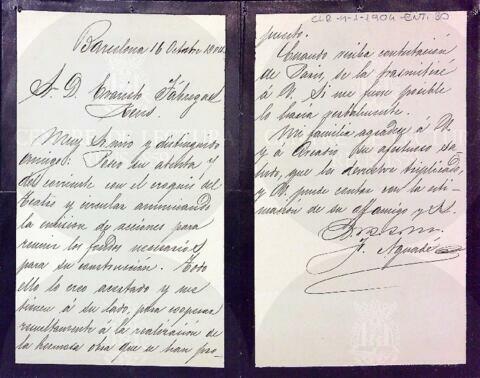 CLR-11-1-1904-ENT.80
Barcelona 16 Octubre 1904
Sr. D. Evaristo Fábregas
Reus.
Muy Sr. mio y distinguido
amigo: Poseo su atenta y
del corriente con el croquis del
Teatro y circular anunciando
la emision de acciones para
reunir los fondos necesarios
para su construcción. Todo
ello lo creo acertado y me
tienen á su lado, para cooperar
á la realización de
la hermosa obra que se han pro-
puesto.
Cuando reciba contestacion
de Paris, se la trasmitiré
á V. Si me fuere posible
lo haria verbalmente.
Mi familia agradece á V.
y á Arcadio su afectuoso sa-
ludo, que les devuelve triplicado,
y V. puede contar con la esti-
macion de su aff. amigo y S.S.
F. Aguadé
CENTRE DE LECTURA